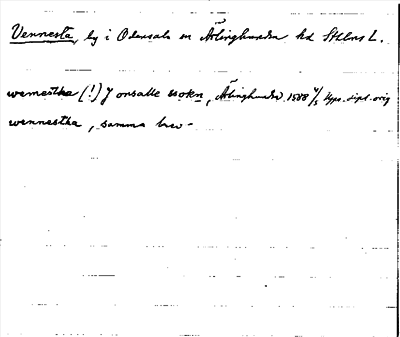 Vennesta, by i Odensala sn Ärlinghundra hd Sthlms L.
wemestha (!) J onsalle sokn, Ärlinghundra 1508 4/5 Ups. dipl. orig
wennestha, samma brev -